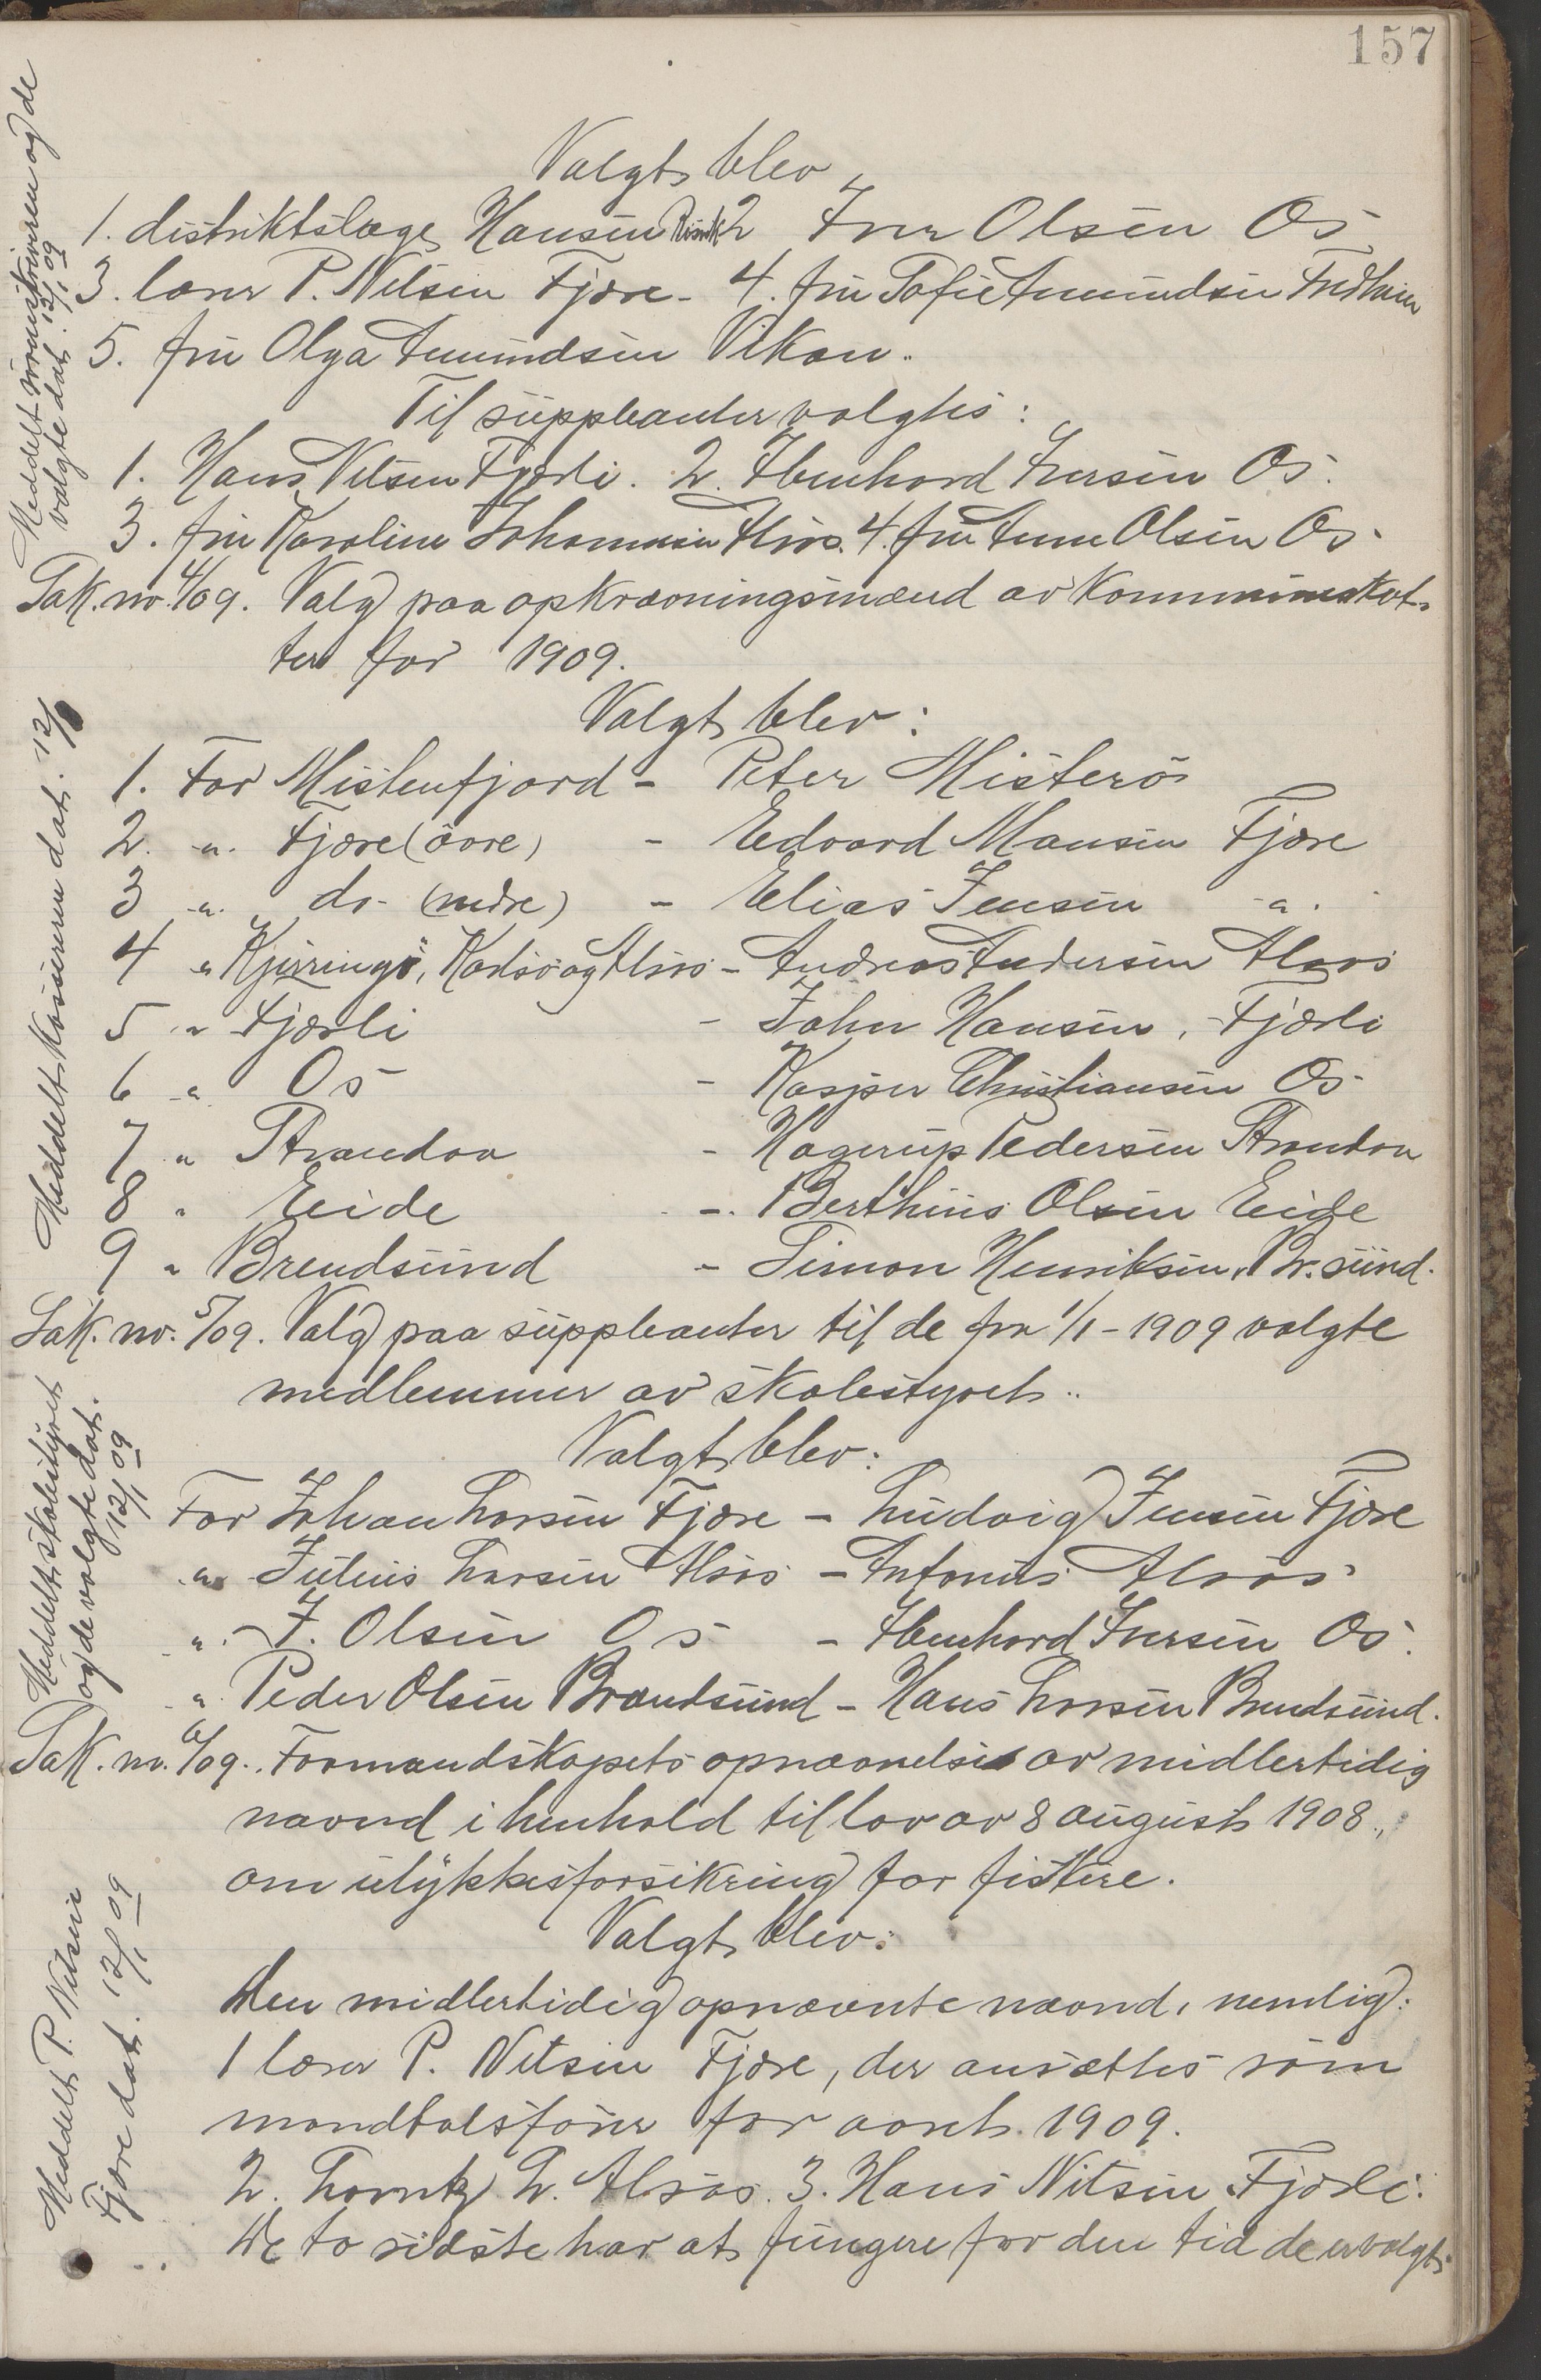 157
Valgt blev
1. distriktslæge Hansen 2 Iver Olsen Os
3. lærer P. Nilsen Fjære - 4. fru Sofie Amundsen Fredheim
5. fru Olga Amundsen Vikan.
Til suppleanter valgtes:
1. Hans Nilsen Fjærli. 2. Ebenhard Iversen Os.
3. fru Karoline Johannesen Alsos. 4. fru Anne Olsen Os.
Meddelt ordføreren og de
valgte dat. 12/1 09
Sak. nr. 4/09. Valg paa opkrævningsmænd av kommuneskat-
ter for 1909.
Valgt blev:
1. For Mistenfjord - Peter Misterö
2. -"- Fjære (övre) - Edvard Mansen Fjære
3 -"- do- (nedre) - Elias Jensen -"-
4 " Kjerringö, Karlsö og Alsos - Andreas Andersen Alsos
5 " Fjærli - John Hansen, Fjærli
6 -"- Os - Kasper Christiansen Os
7 " Strandaa - Hagerup Pedersen Strandaa
8 " Eeide - Berthius Olsen Eide
9 " Brendsund - Simon Henriksen, Br.sund.
Meddelt kasserern dat. 12/1
Sak. nr. 5/09. Valg paa suppleanter til de fra 1/1-1909 valgte
medlemmer av skolestyret.
Valgt blev:
For Johan Larsen Fjære - Ludvig Jensen Fjære
-"- Julius Larsen Alsos - Antonius Alsos
" J. Olsen Os - Ebenhard Iversen Os.
" Peder Olsen Brændsund - Hans Larsen Brendsund.
Meddelt skolestyret
og de valgte dat.
12/1 09
Sak. nr. 6/09. Formandskapets opnævnelse av midlertidig
nævnd i henhold til lov av 8 august 1908,
om ulykkesforsikring for fiskere.
Valgt blev:
Den midlertidig opnævnte nævnd, nemlig:
1 lærer P. Nilsen Fjære, der ansættes som
mandtalsfører for aaret 1909.
2. Lorentz L. Alsos. 3. Hans Nilsen Fjærli.
De to sidste har at fungere for den tid de er valgt.
Meddelt P. Nilsen
Fjære dat. 12/1 09